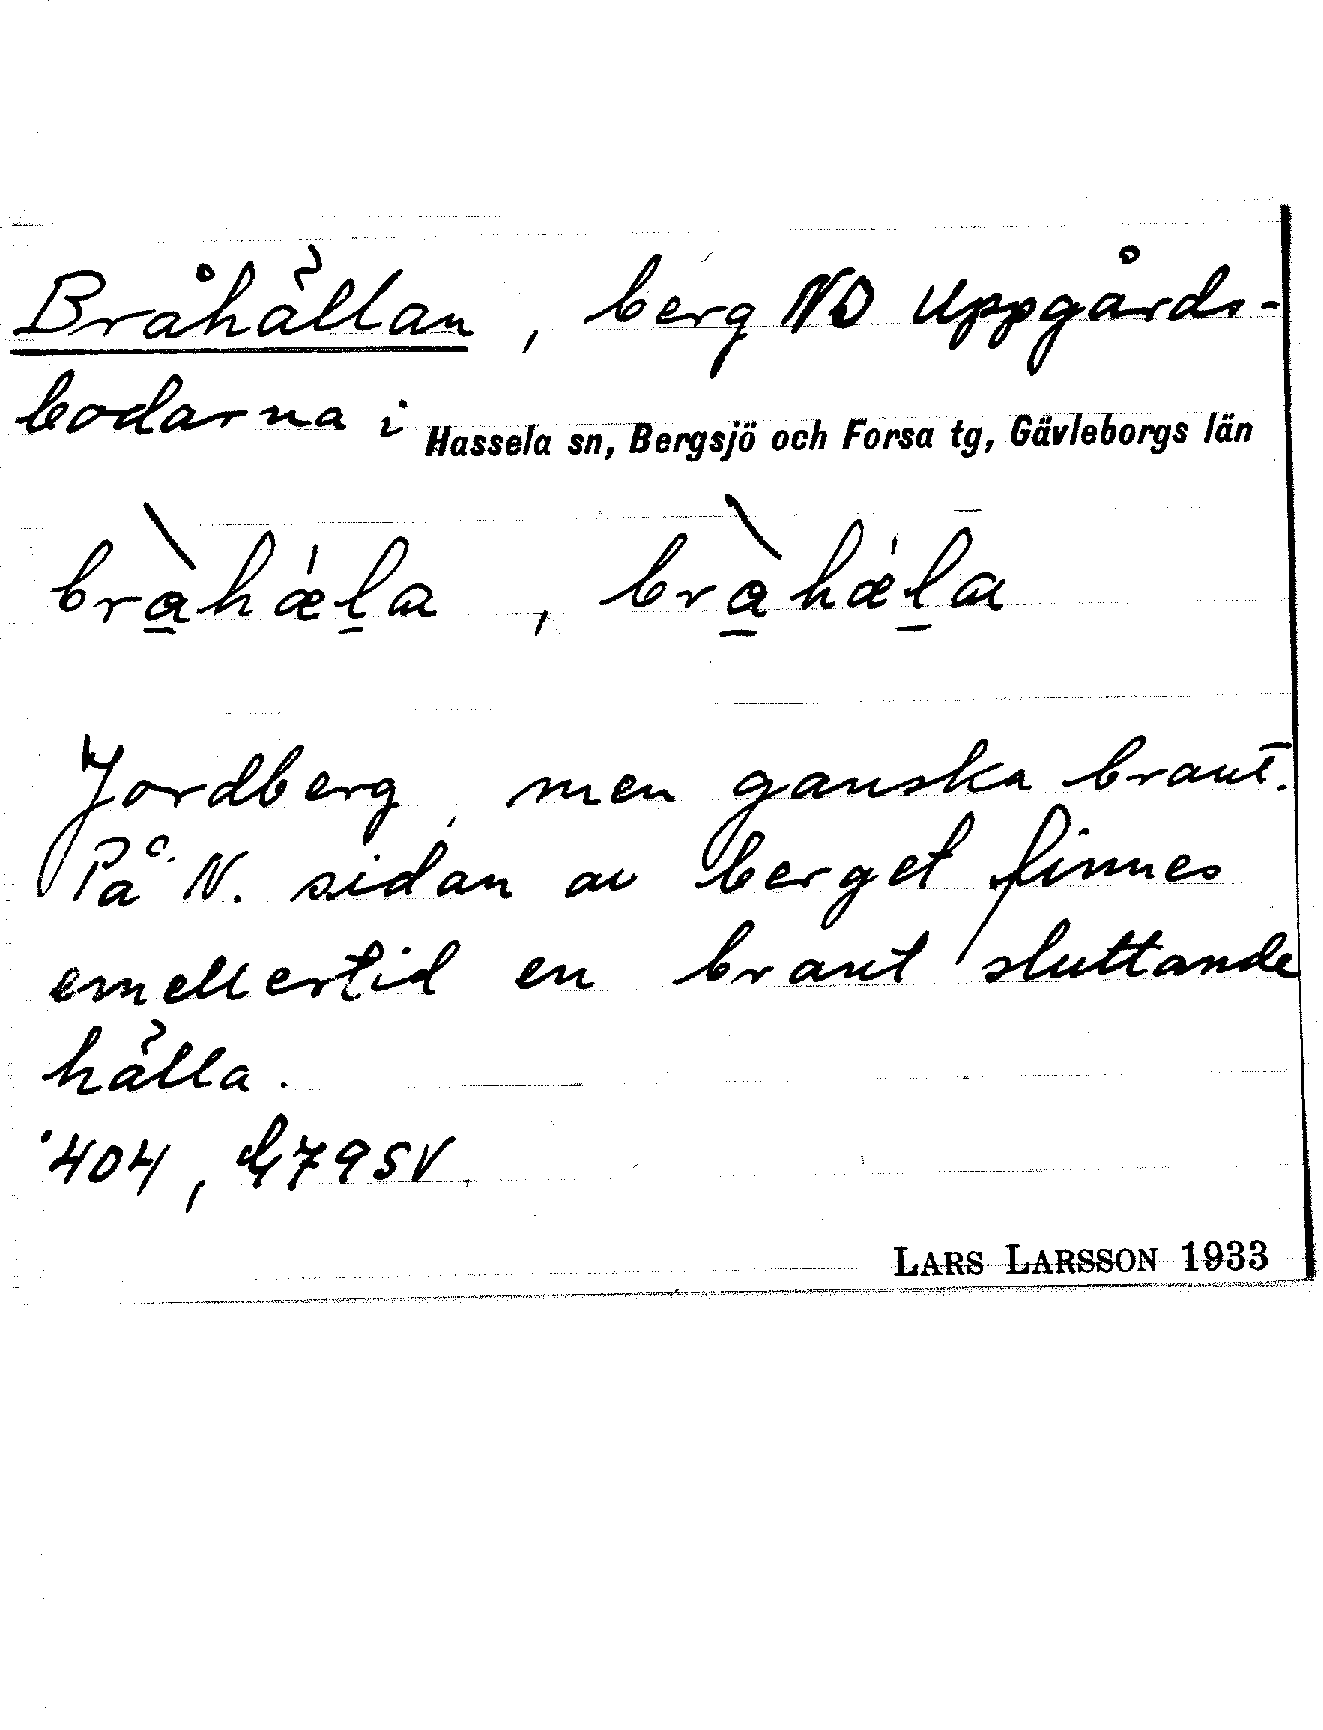 Bråhällan, berg NO Uppgårds-
bodarna i Hassela sn, Bergsjö och Forsa tg, Gävleborgs län
bràhæ̍la, bràhæ̍la
Jordberg, men ganska brant.
På N. sidan av berget finnes
emellertid en brant sluttande
hälla.
404, 479SV
LARS LARSSON 1933